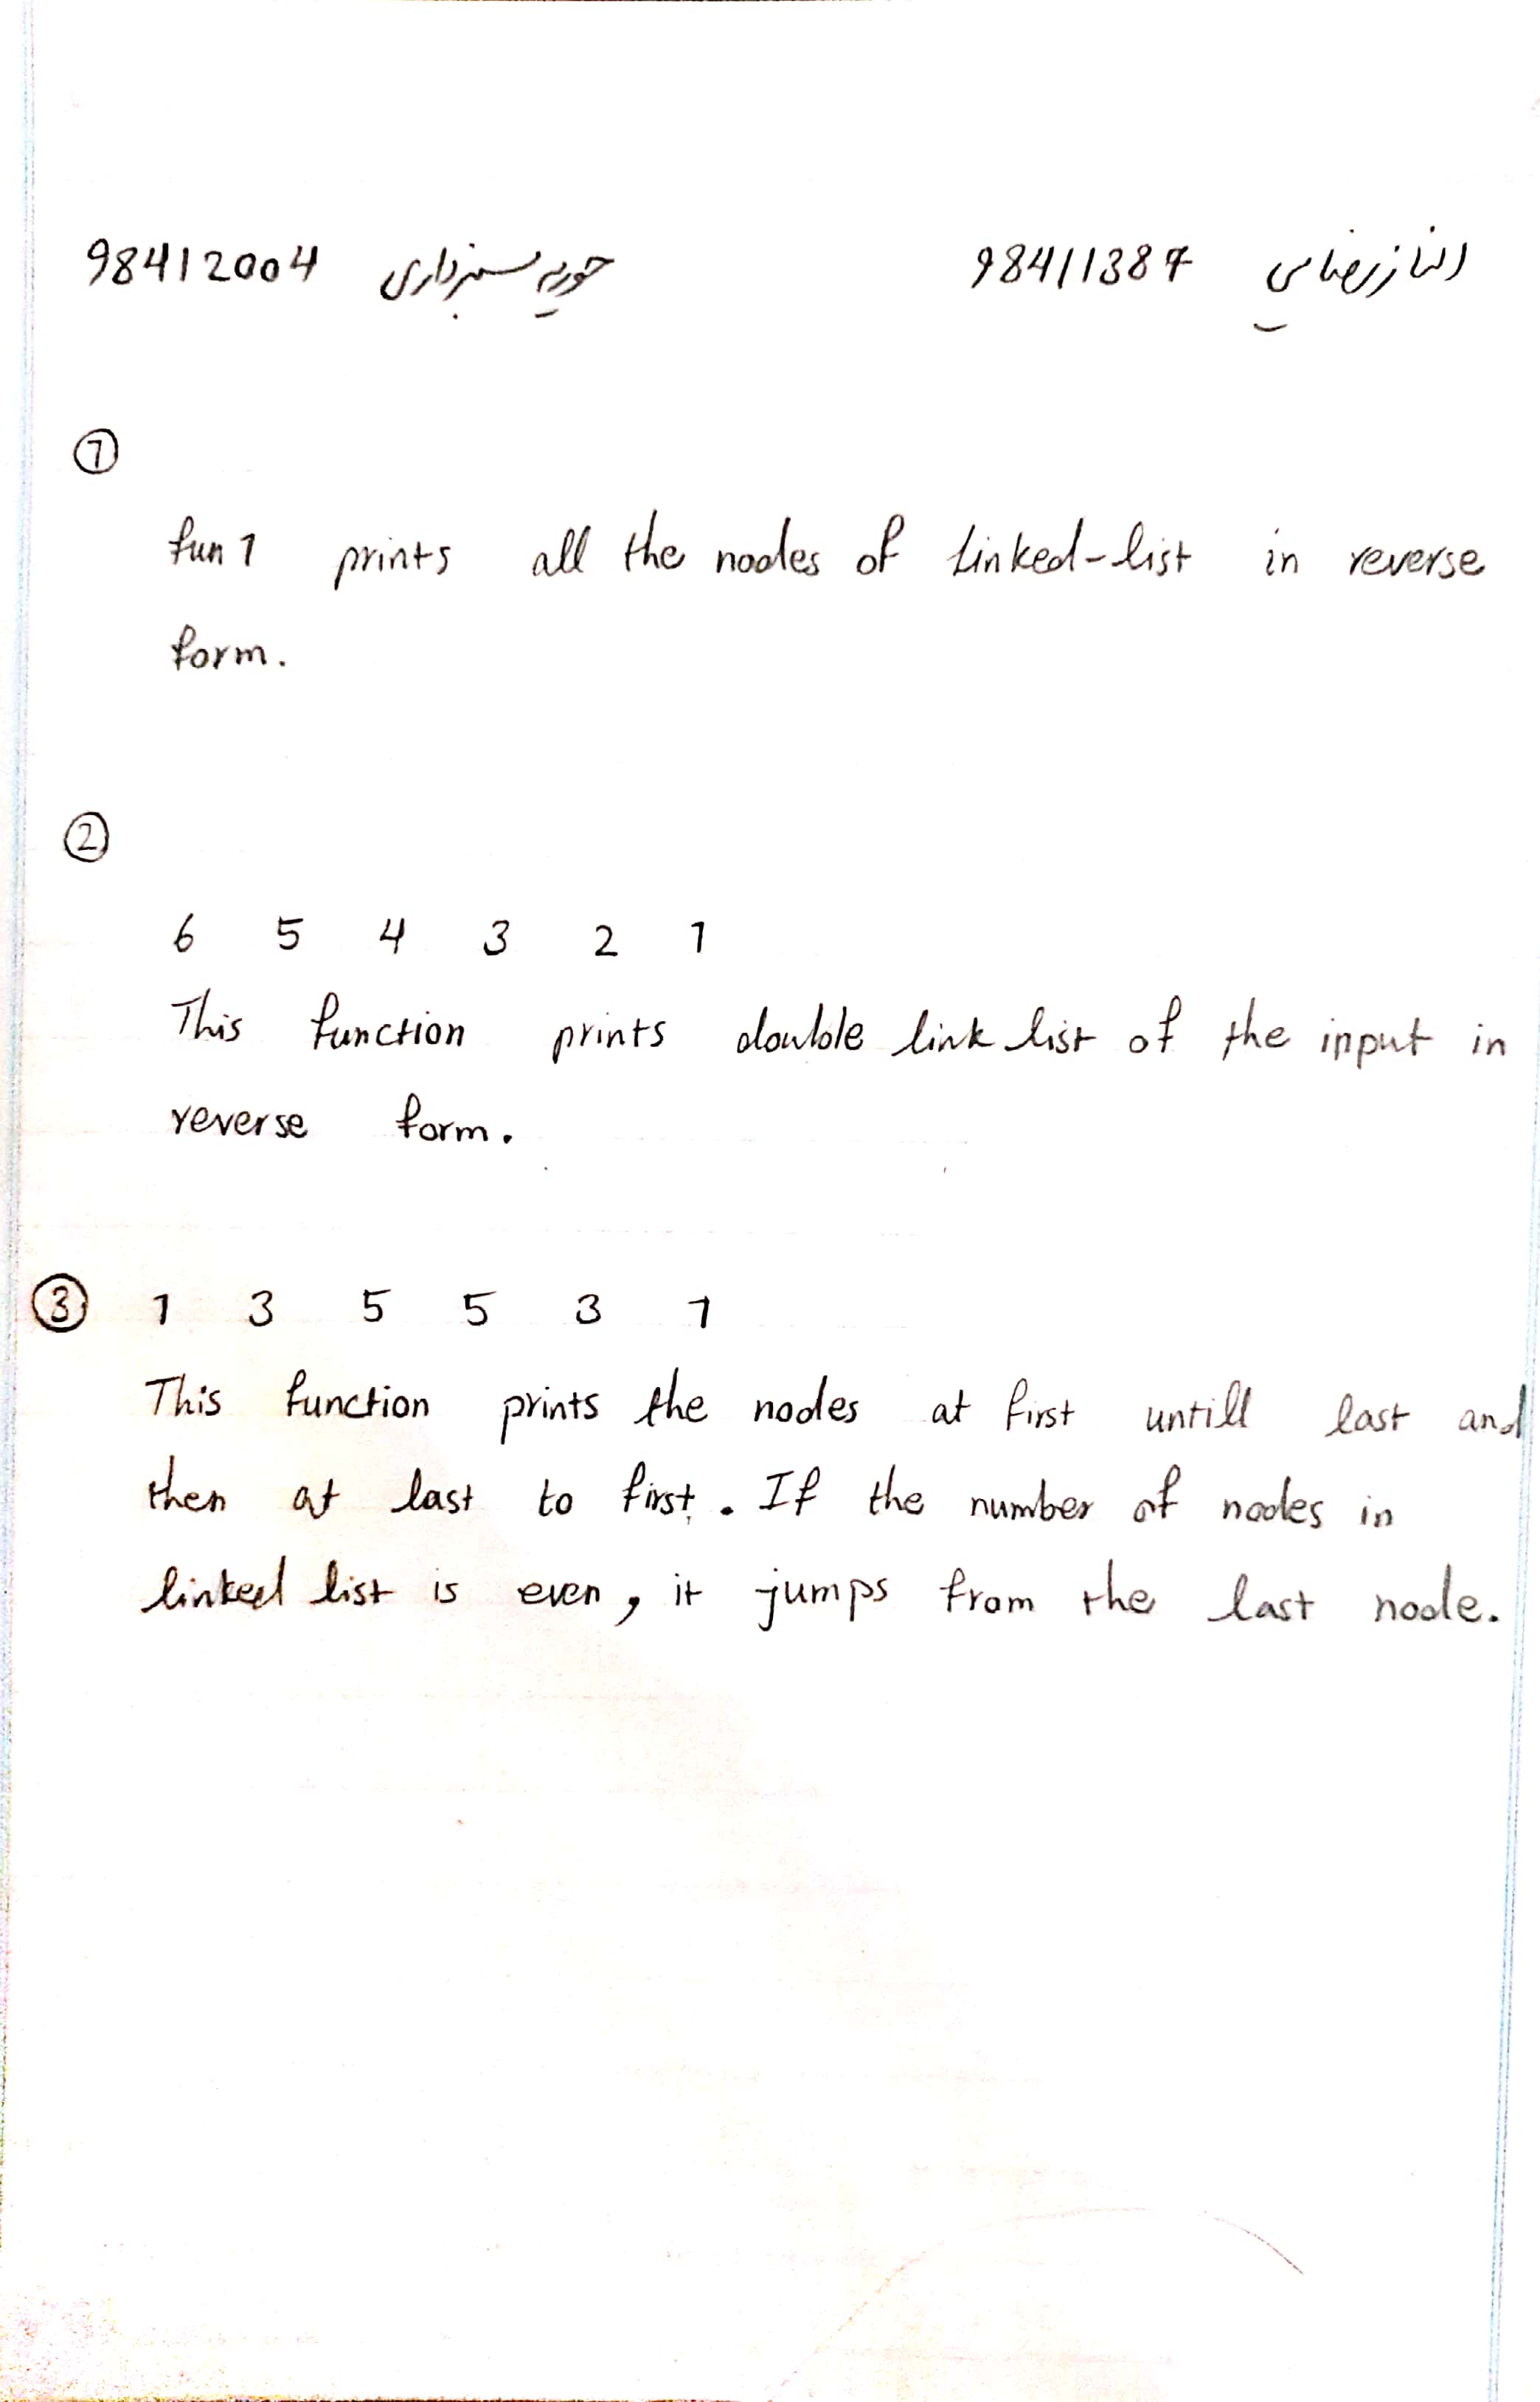 98412004 حوریه سبزواری 98411387 الناز رضایی
1
fun 1 prints all the nodes of linked-list in reverse
form.
2
6 5 4 3 2 1
This function prints double link list of the input in
reverse form.
3 1 3 5 5 3 1
This function prints the nodes at first untill last and
then at last to first. If the number of nodes in
linked list is even, it jumps from the last node.